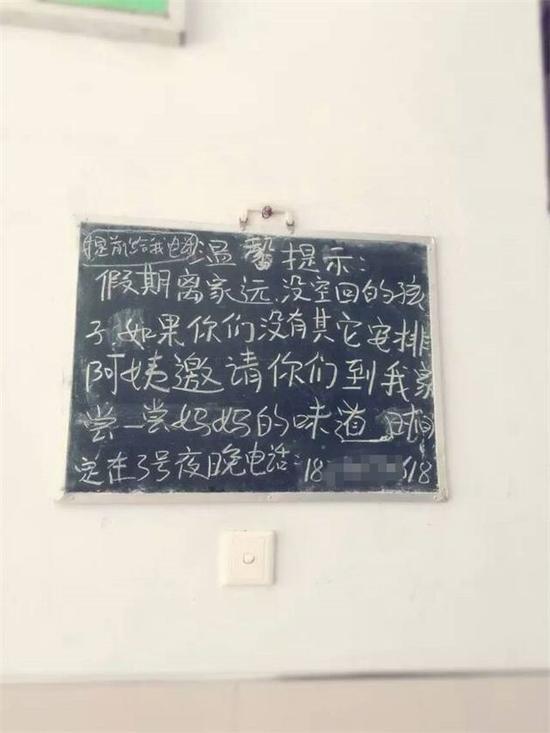 提前给我电话 温馨提示:
假期离家远,没空回的孩
子,如果你们没有其它安排
阿姨邀请你们到我家
尝一尝妈妈的味道 时间
定在3号夜晚电话:18 318